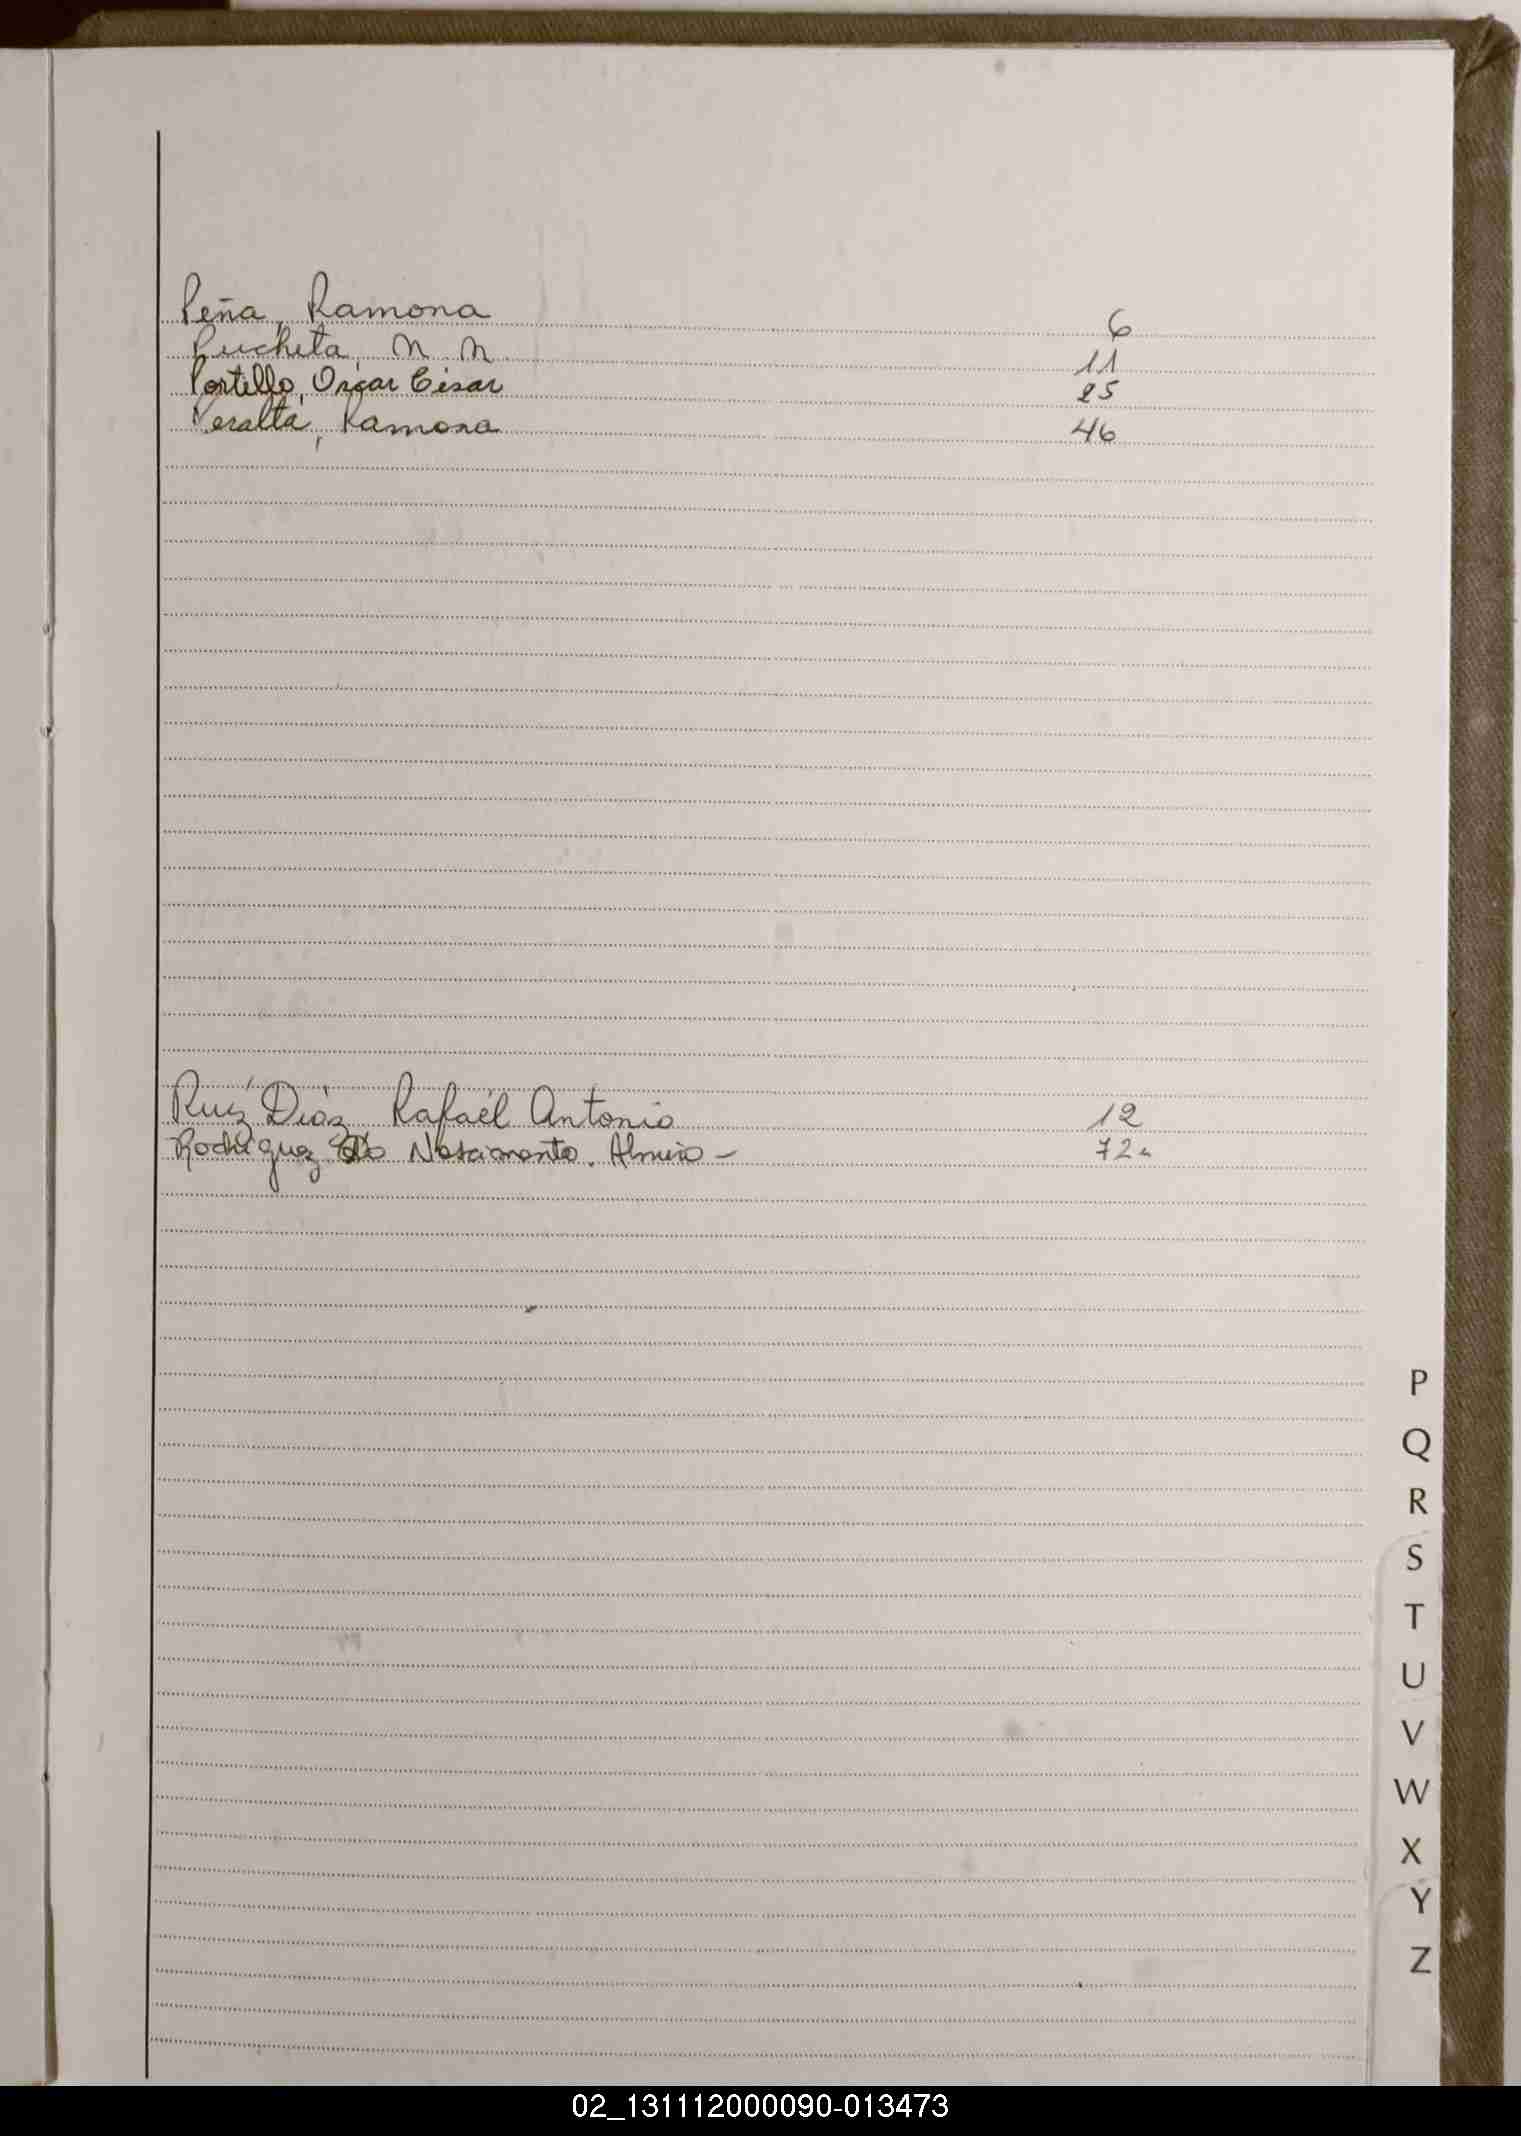 Peña, Ramona 6
Pucheta, N. N. 11
Portillo, Oscar César 25
Peralta, Ramona 46
Ruíz Díaz Rafaél Antonio 12
Rodriguez Do Nascimento. Almiro - 72
P
Q
R
S
T
U
V
W
X
Y
Z
02_131112000090-013473